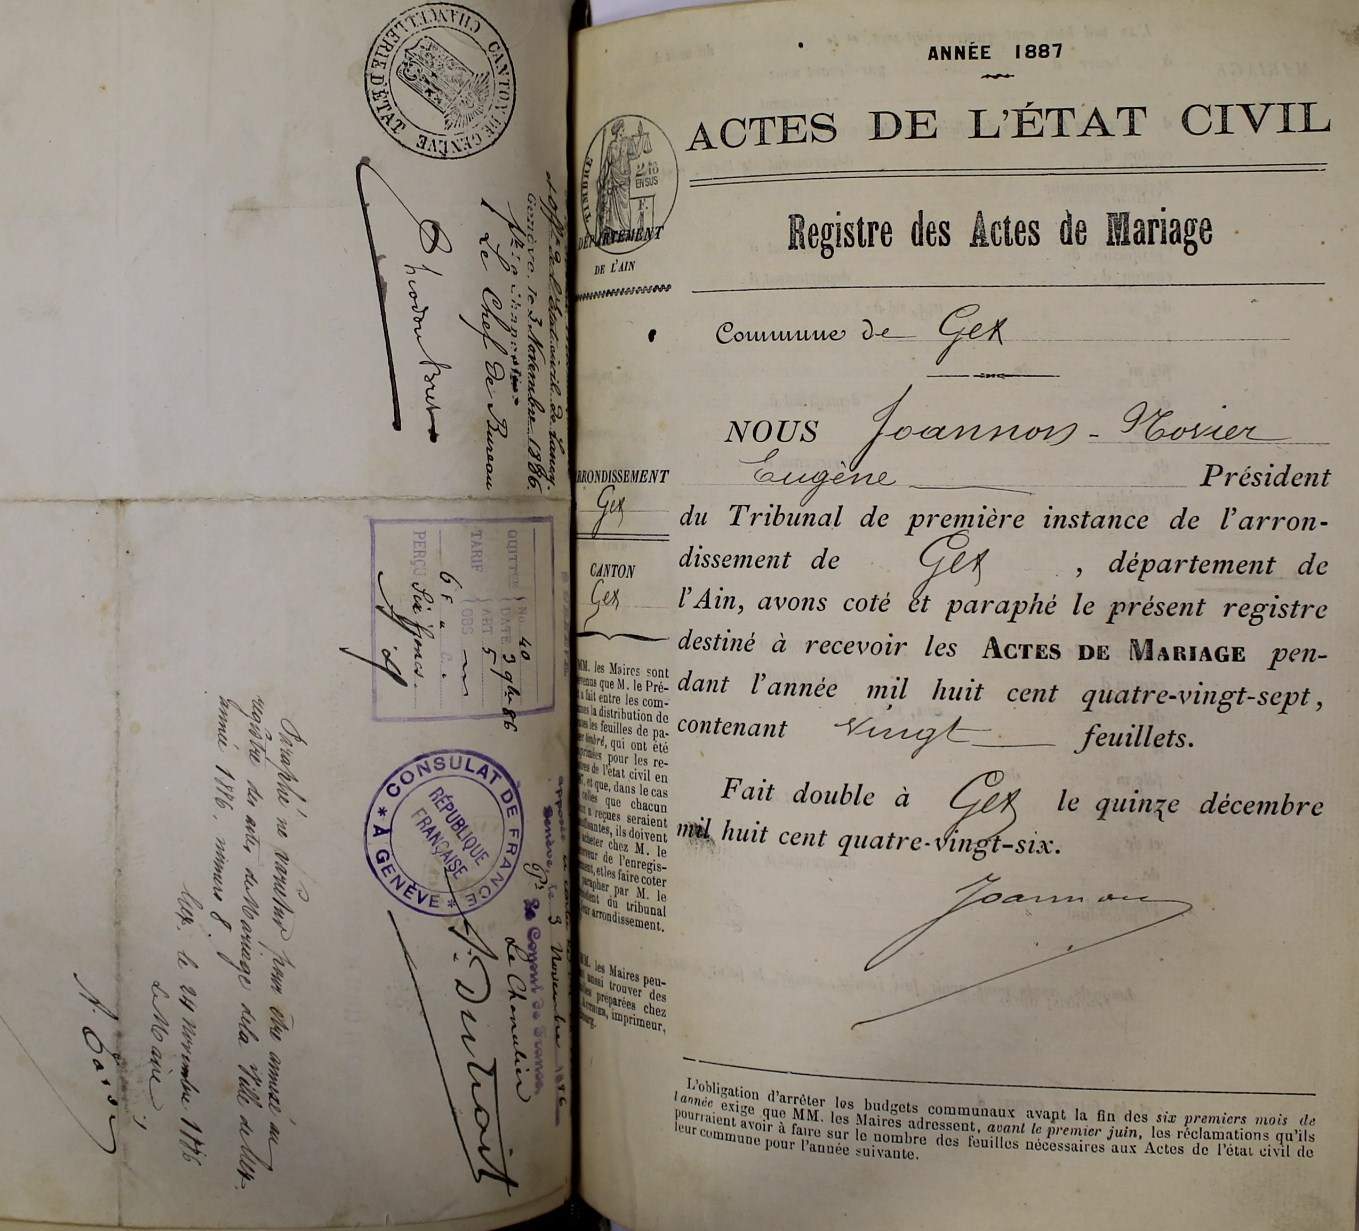 CANTON DE GENÈVE
CHANCELLERIE D'ETAT
Genève, le 3 Novembre 1886.
Le Chef de Bureau
QUITTCE No. 40
DATE 3 9bre 86
TARIF ART 5
OBS
6 F " C.
PERÇU Six francs.
CONSULAT DE FRANCE
* À GENÈVE *
RÉPUBLIQUE
FRANÇAISE
Genève, le 3 Novembre 1886
Le Chancelier
Paraphé ne varietur pour être annexé au
registre des actes de Mariage de la Ville de Gex.
année 1886, numéro 8.
Gex. le 24 novembre 1886
Le Maire
ANNÉE 1887
ACTES DE L'ÉTAT CIVIL
TIMBRE
EN SUS
DÉPARTEMENT
DE L'AIN
Registre des Actes de Mariage
Commune de Gex
NOUS Joannon-Novier
Eugène Président
ARRONDISSEMENT
Gex
du Tribunal de première instance de l'arron-
dissement de Gex, département de
CANTON
Gex
l'Ain, avons coté et paraphé le présent registre
destiné à recevoir les ACTES DE MARIAGE pen-
dant l'année mil huit cent quatre-vingt-sept,
contenant vingt feuillets.
Fait double à Gex le quinze décembre
mil huit cent quatre-vingt-six.
Joannon
MM. les Maires sont
que M. le Pré-
fait entre les com-
la distribution de
les feuilles de pa-
timbré, qui ont été
pour les re-
de l'état civil en
et que, dans le cas
celles que chacun
reçues seraient
ils doivent
acheter chez M. le
de l'enregis-
et les faire coter
parapher par M. le
du tribunal
arrondissement.
MM. les Maires peu-
aussi trouver des
préparées chez
imprimeur,
L'obligation d'arrêter les budgets communaux avant la fin des six premiers mois de
l'année exige que MM. les Maires adressent, avant le premier juin, les réclamations qu'ils
pourraient avoir à faire sur le nombre des feuilles nécessaires aux Actes de l'état civil de
leur commune pour l'année suivante.